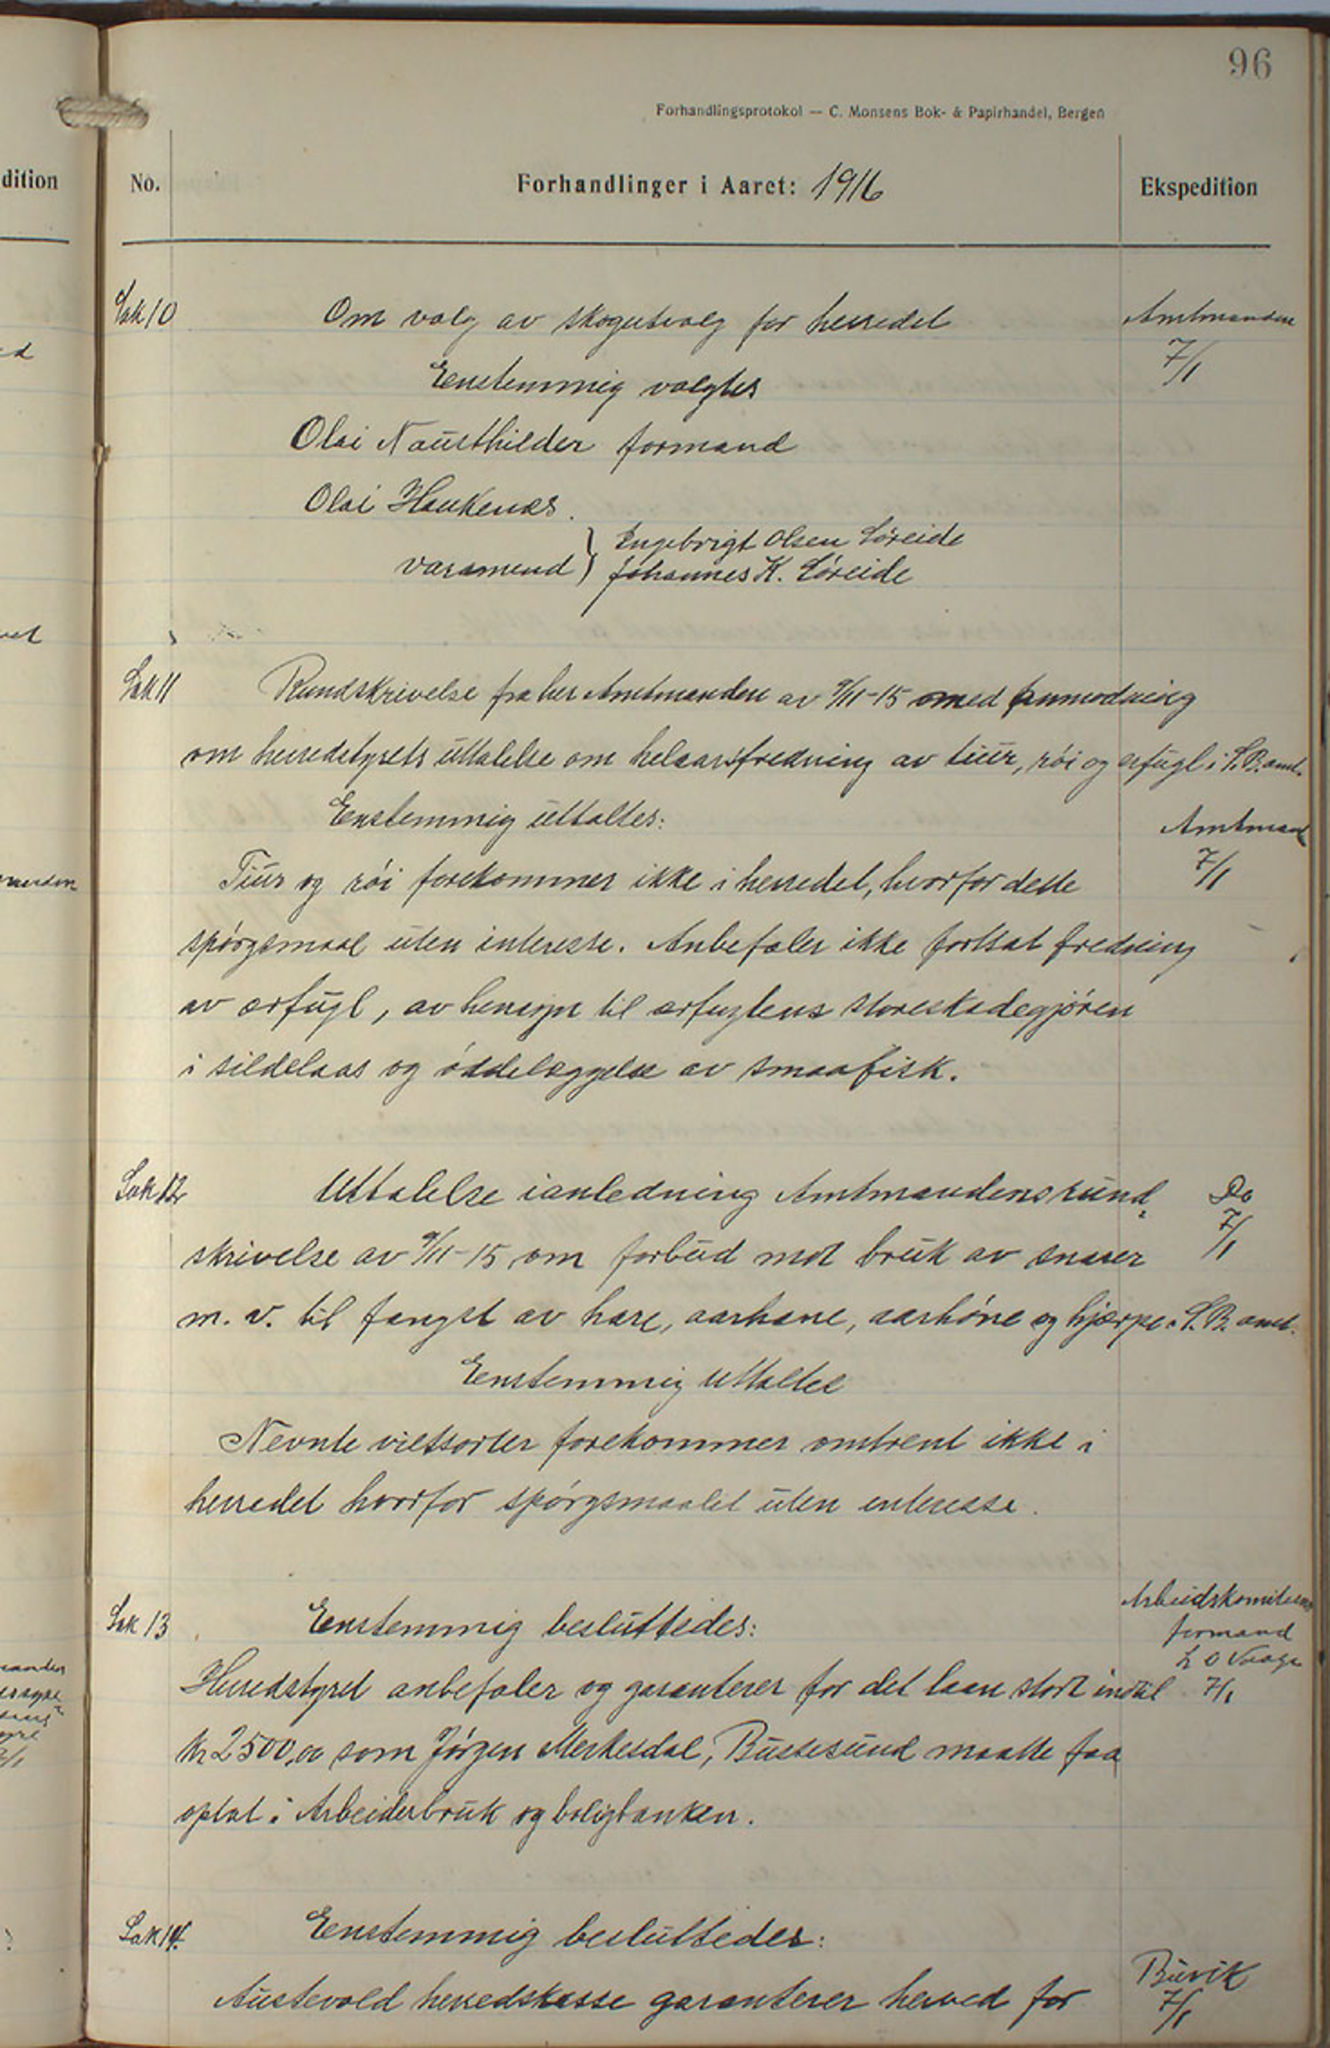 96
Forhandlingsprotokol — C. Monsens Bok- & Papirhandel, Bergen
dition
No.
Forhandlinger i Aaret: 1916
Ekspedition
Sak 10
Om valg av skogutvalg for herredet
Amtmanden
7/1
Eenstemmig valgtes
Olai Nausthilder formand
Olai Haukenæs.
varamend } Engebrigt Olsen Søreide
Johannes K. Søreide
Sak 11
Rundskrivelse fra her Amtmanden av 9/11-15 med anmodning
om herredstyrets uttalelse om helaarsfredning av tiur, røi og erfugl i S. B. amt.
Enstemmig uttaltes:
Amtmand
7/1
Tiur og røi forekommer ikke i herredet, hvorfor dette
spørgsmaal uten interesse. Anbefaler ikke fortsat fredning
av ærfugl, av hensyn til ærfuglens storeskadegjøren
i sildelaas og øddelæggelse av smaafisk.
Sak 12
Uttalelse i anledning Amtmandens rund-
Do
7/1
skrivelse av 9/11-15 om forbud mot bruk av snarer
m. v. til fangst av hare, aarhane, aarhøne og hjærpe i S. B. amt.
Eenstemmig uttaltes
Nevnte vietsorter forekommer omtrent ikke i
herredet hvorfor spørgsmaalet uten interesse.
Sak 13
Eenstemmig besluttedes:
Arbeidskomiteens
formand
7/1
Herredstyret anbefaler og garanterer for det laan stort indtil
kr 2500,00 som Jørgen Merkesdal, Bussesund maatte faa
optat i Arbeiderbruk og boligbanken.
Sak 14.
Eenstemmig besluttedes:
Austevold herredskasse garanterer herved for
Buvik
7/1